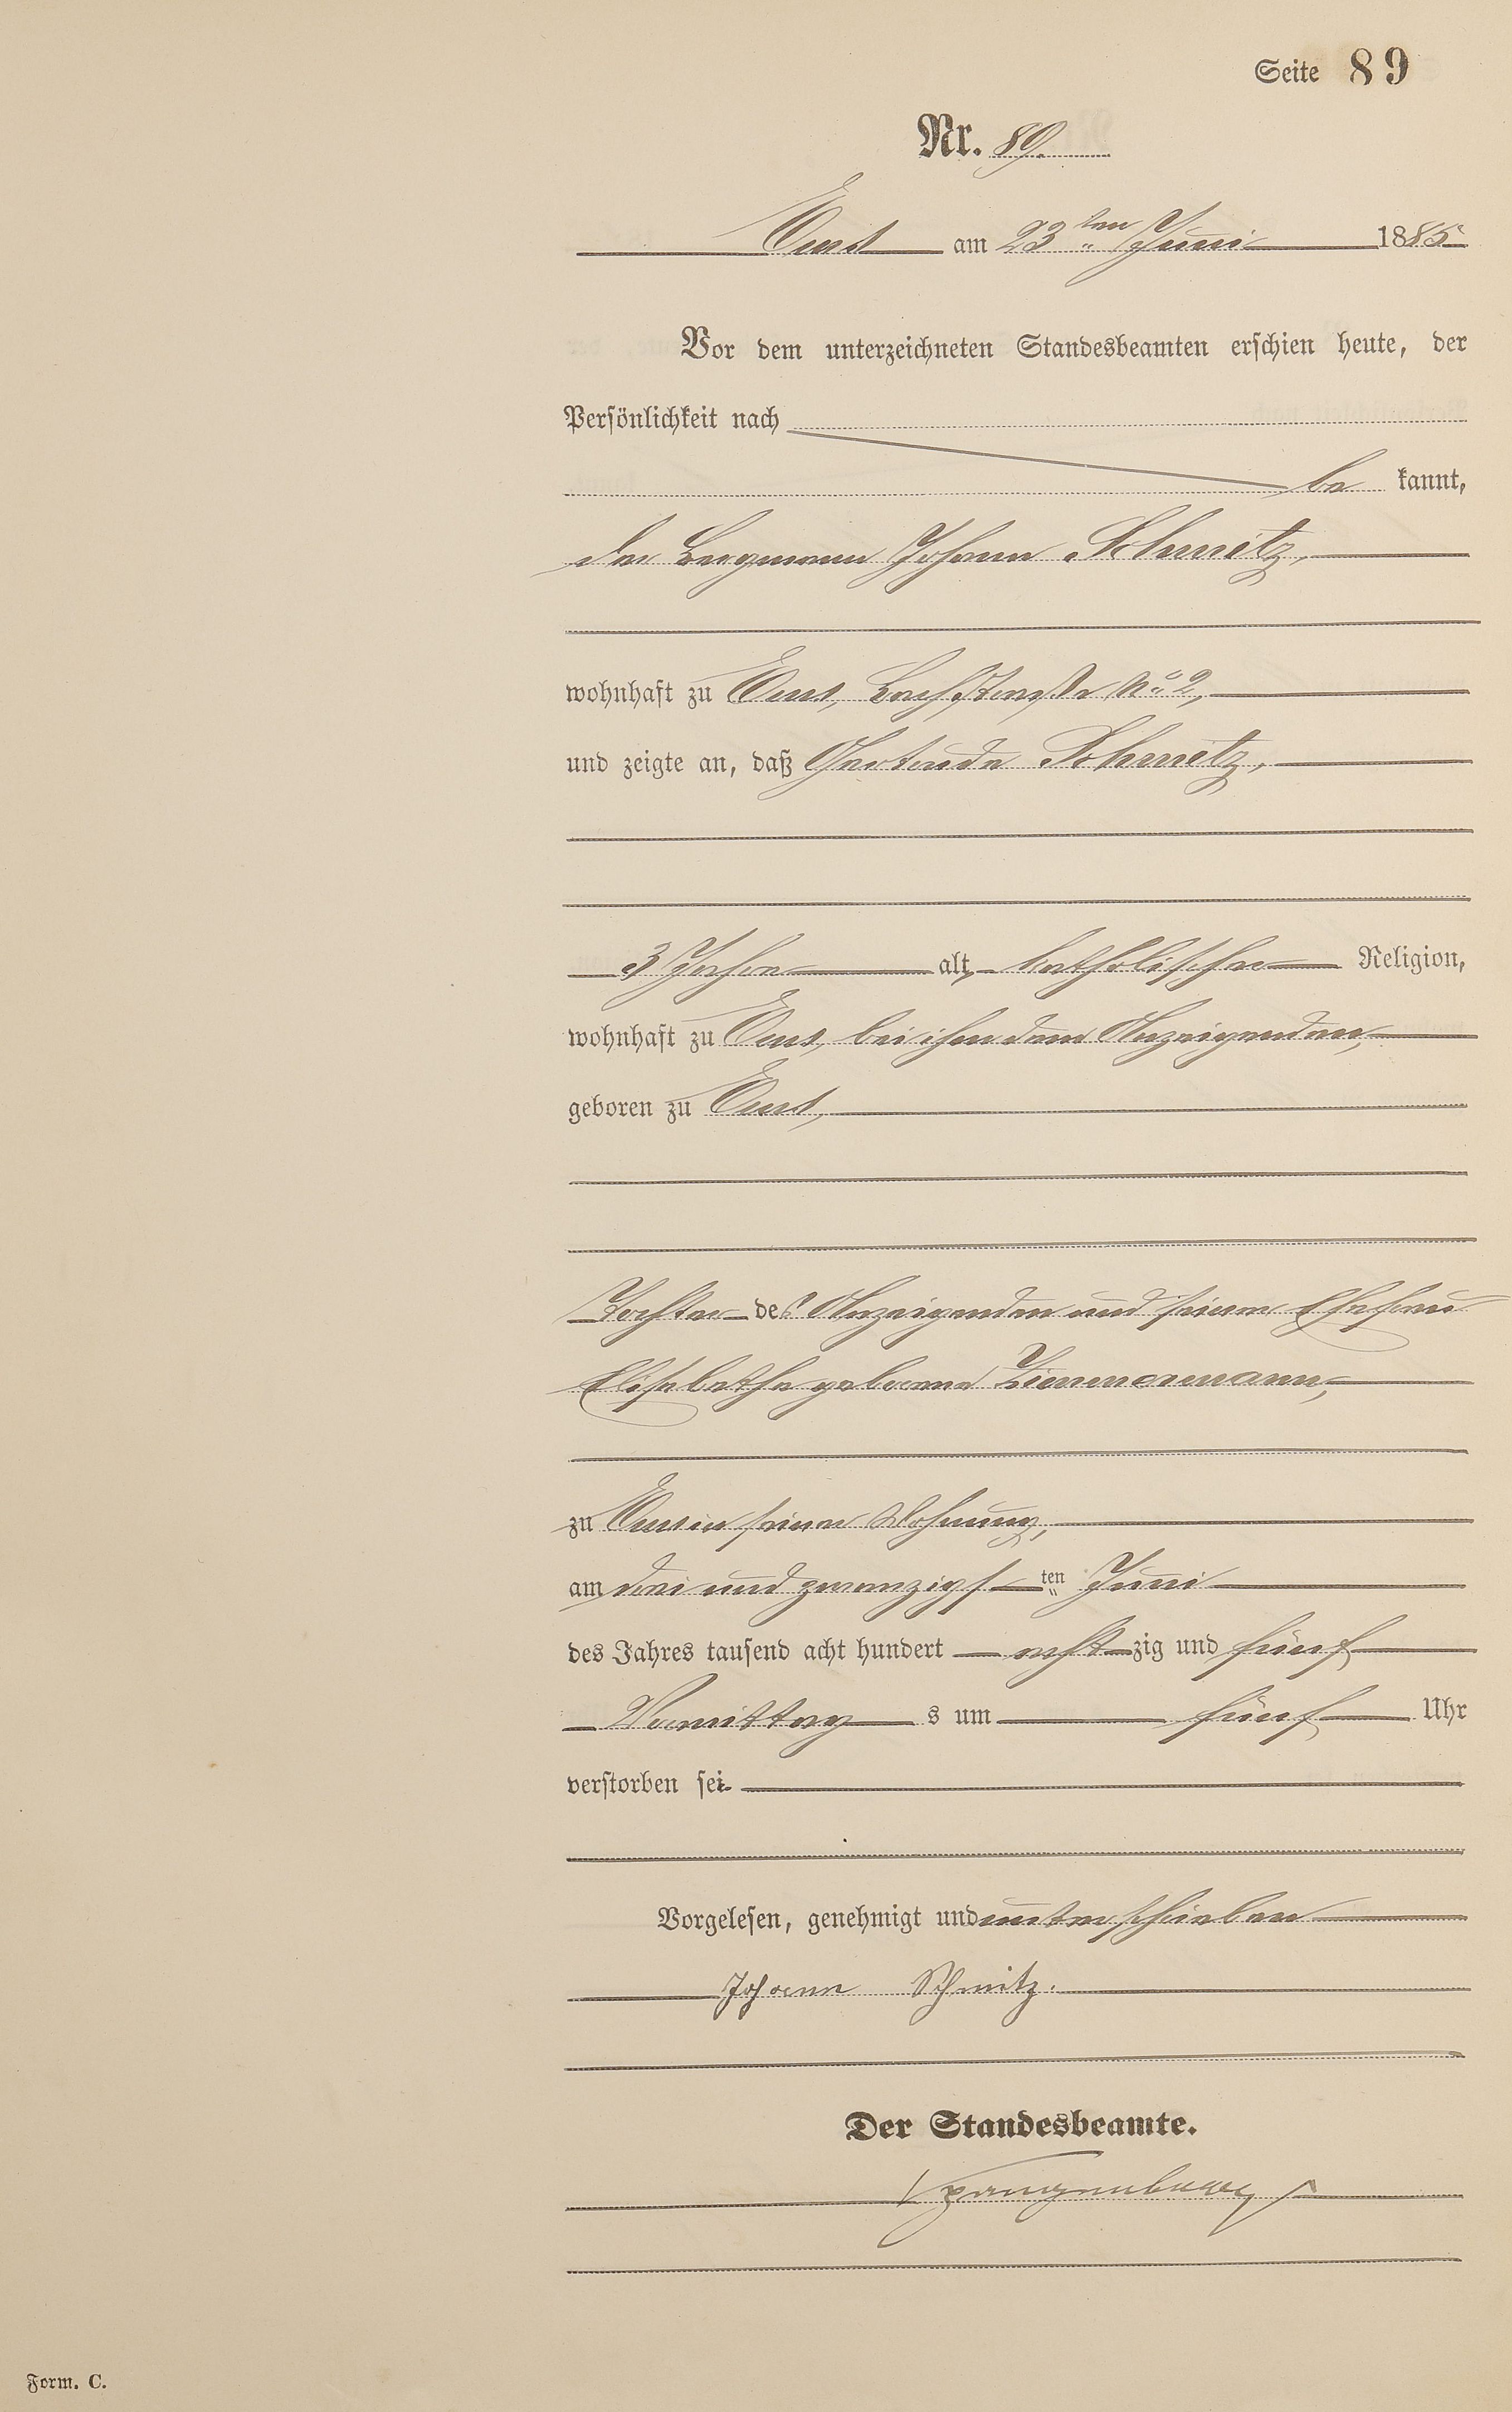 Seite 89
Nr. 89.
Ems am 23ten Juni 1885
Vor dem unterzeichneten Standesbeamten erschien heute, der
Persönlichkeit nach
be kannt,
der Bergmann Johann Schmitz,
wohnhaft zu Ems, Bachstraße No 2,
und zeigte an, daß Gertrude Schmitz,
3 Jahre alt, katholischer Religion,
wohnhaft zu Ems, bei ihm dem Anzeigenden,
geboren zu Ems,
Tochter des Anzeigenden und seiner Ehefrau
Elisabetha geborene Zimmermann,
zu Ems in seiner Wohnung,
am drei und zwanzigs ten Juni
des Jahres tausend acht hundert acht zig und fünf
Vormittag s um fünf Uhr
verstorben sei
Vorgelesen, genehmigt und unterschrieben
Johann Schmitz.
Der Standesbeamte.
Form. C.